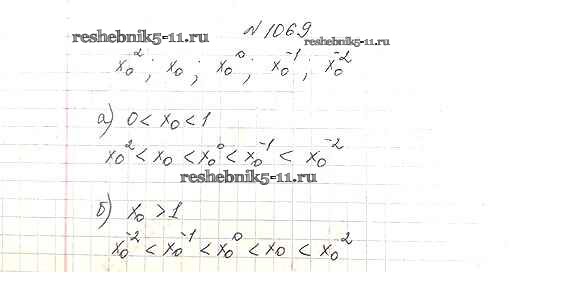 reshebnik5-11.ru
N 1069
reshebnik5-11.ru
x₀²; x₀; x₀⁰; x₀⁻¹; x₀⁻²
а) 0 < x₀ < 1
x₀² < x₀ < x₀⁰ < x₀⁻¹ < x₀⁻²
reshebnik5-11.ru
б) x₀ > 1
x₀⁻² < x₀⁻¹ < x₀⁰ < x₀ < x₀⁻²